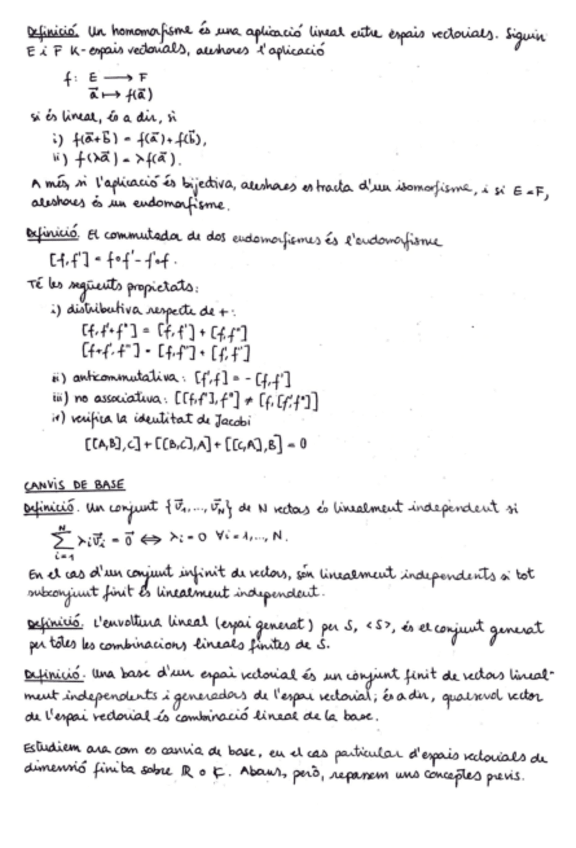 Definició. Un homomorfisme és una aplicació lineal entre espais vectorials. Siguin
E i F K-espais vectorials, aleshores l'aplicació
f: E ⟶ F
a⃗ ⟼ f(a⃗)
si és lineal, és a dir, si
i) f(a⃗+b⃗) = f(a⃗)+f(b⃗),
ii) f(λa⃗) = λf(a⃗).
A més, si l'aplicació és bijectiva, aleshores es tracta d'un isomorfisme, i si E=F,
aleshores és un endomorfisme.
Definició. El commutador de dos endomorfismes és l'endomorfisme
[f,f'] = f∘f'-f'∘f.
Té les següents propietats:
i) distributiva respecte de +:
[f,f'+f"] = [f,f'] + [f,f"]
[f+f',f"] = [f,f"] + [f',f"]
ii) anticommutativa: [f',f] = -[f,f']
iii) no associativa: [[f,f'],f"] ≠ [f,[f',f"]]
iv) verifica la identitat de Jacobi
[[A,B],C]+[[B,C],A]+[[C,A],B] = 0
CANVIS DE BASE
Definició. Un conjunt {v⃗₁,..., v⃗_N} de N vectors és linealment independent si
∑_{i=1}^{N} λᵢv⃗ᵢ = 0⃗ ⟺ λᵢ=0 ∀i=1,..., N.
En el cas d'un conjunt infinit de vectors, són linealment independents si tot
subconjunt finit és linealment independent.
Definició. L'envoltura lineal (espai generat) per S, <S>, és el conjunt generat
per totes les combinacions lineals finites de S.
Definició. Una base d'un espai vectorial és un conjunt finit de vectors lineal-
ment independents i generadors de l'espai vectorial; és a dir, qualsevol vector
de l'espai vectorial és combinació lineal de la base.
Estudiem ara com es canvia de base, en el cas particular d'espais vectorials de
dimensió finita sobre ℝ o ℂ. Abans, però, repassem uns conceptes previs.